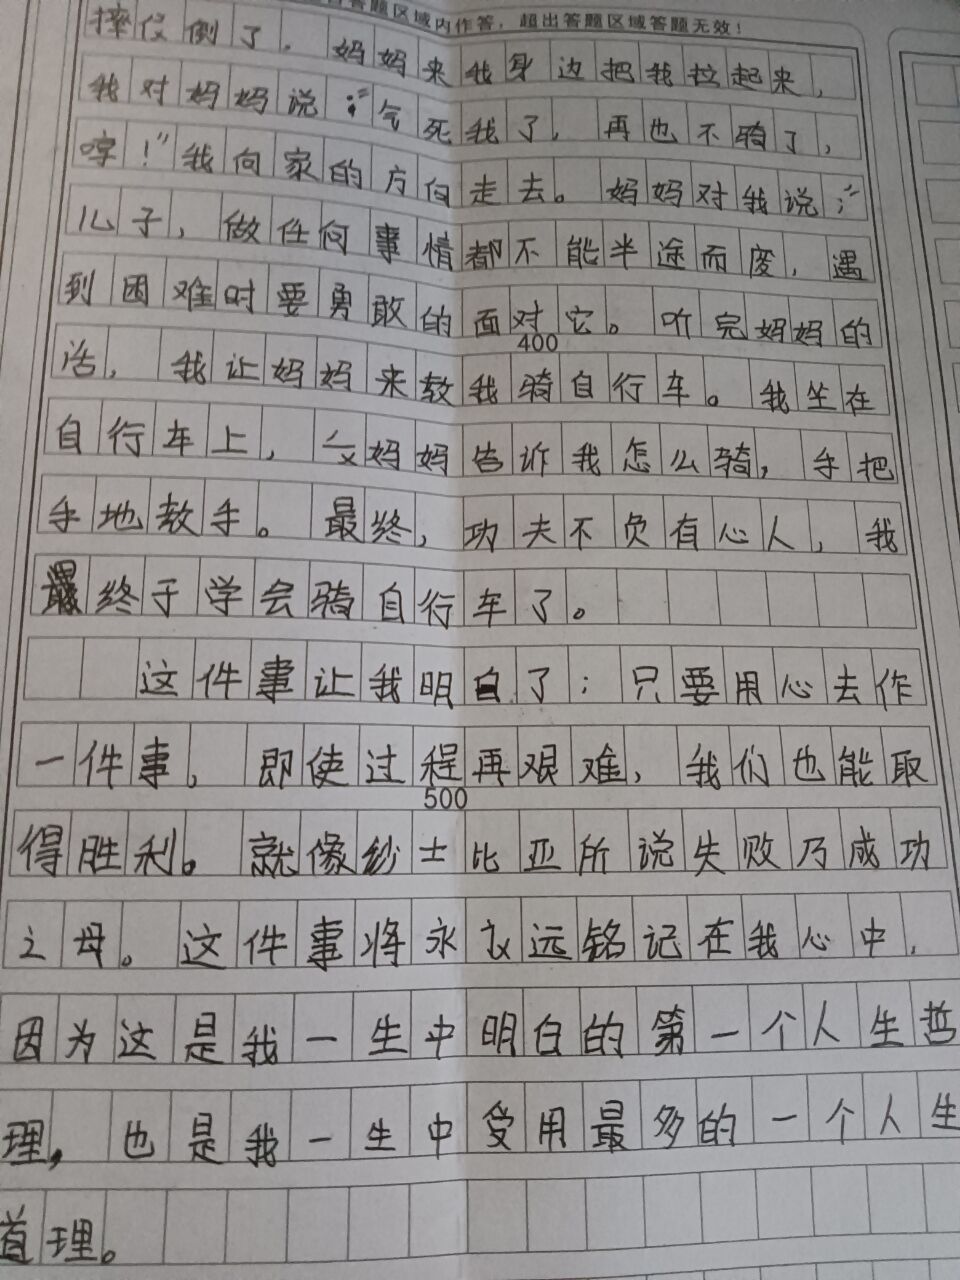 答题区域内作答，超出答题区域答题无效！
倒了，妈妈来我身边把我拉起来，
我对妈妈说：“气死我了，再也不骑了，
哼！”我向家的方向走去。妈妈对我说：“
儿子，做任何事情都不能半途而度，遇
到困难时要勇敢的面对它。听完妈妈的
400
话，我让妈妈来教我骑自行车。我坐在
自行车上，妈妈告诉我怎么骑，手把
手地教手。最终，功夫不负有心人，我
最终于学会骑自行车了。
这件事让我明白了：只要用心去作
一件事，即使过程再艰难，我们也能取
500
得胜利。就像纱士比亚所说失败乃成功
之母。这件事将永远铭记在我心中，
因为这是我一生中明白的第一个人生哲
理，也是我一生中受用最多的一个人生
道理。